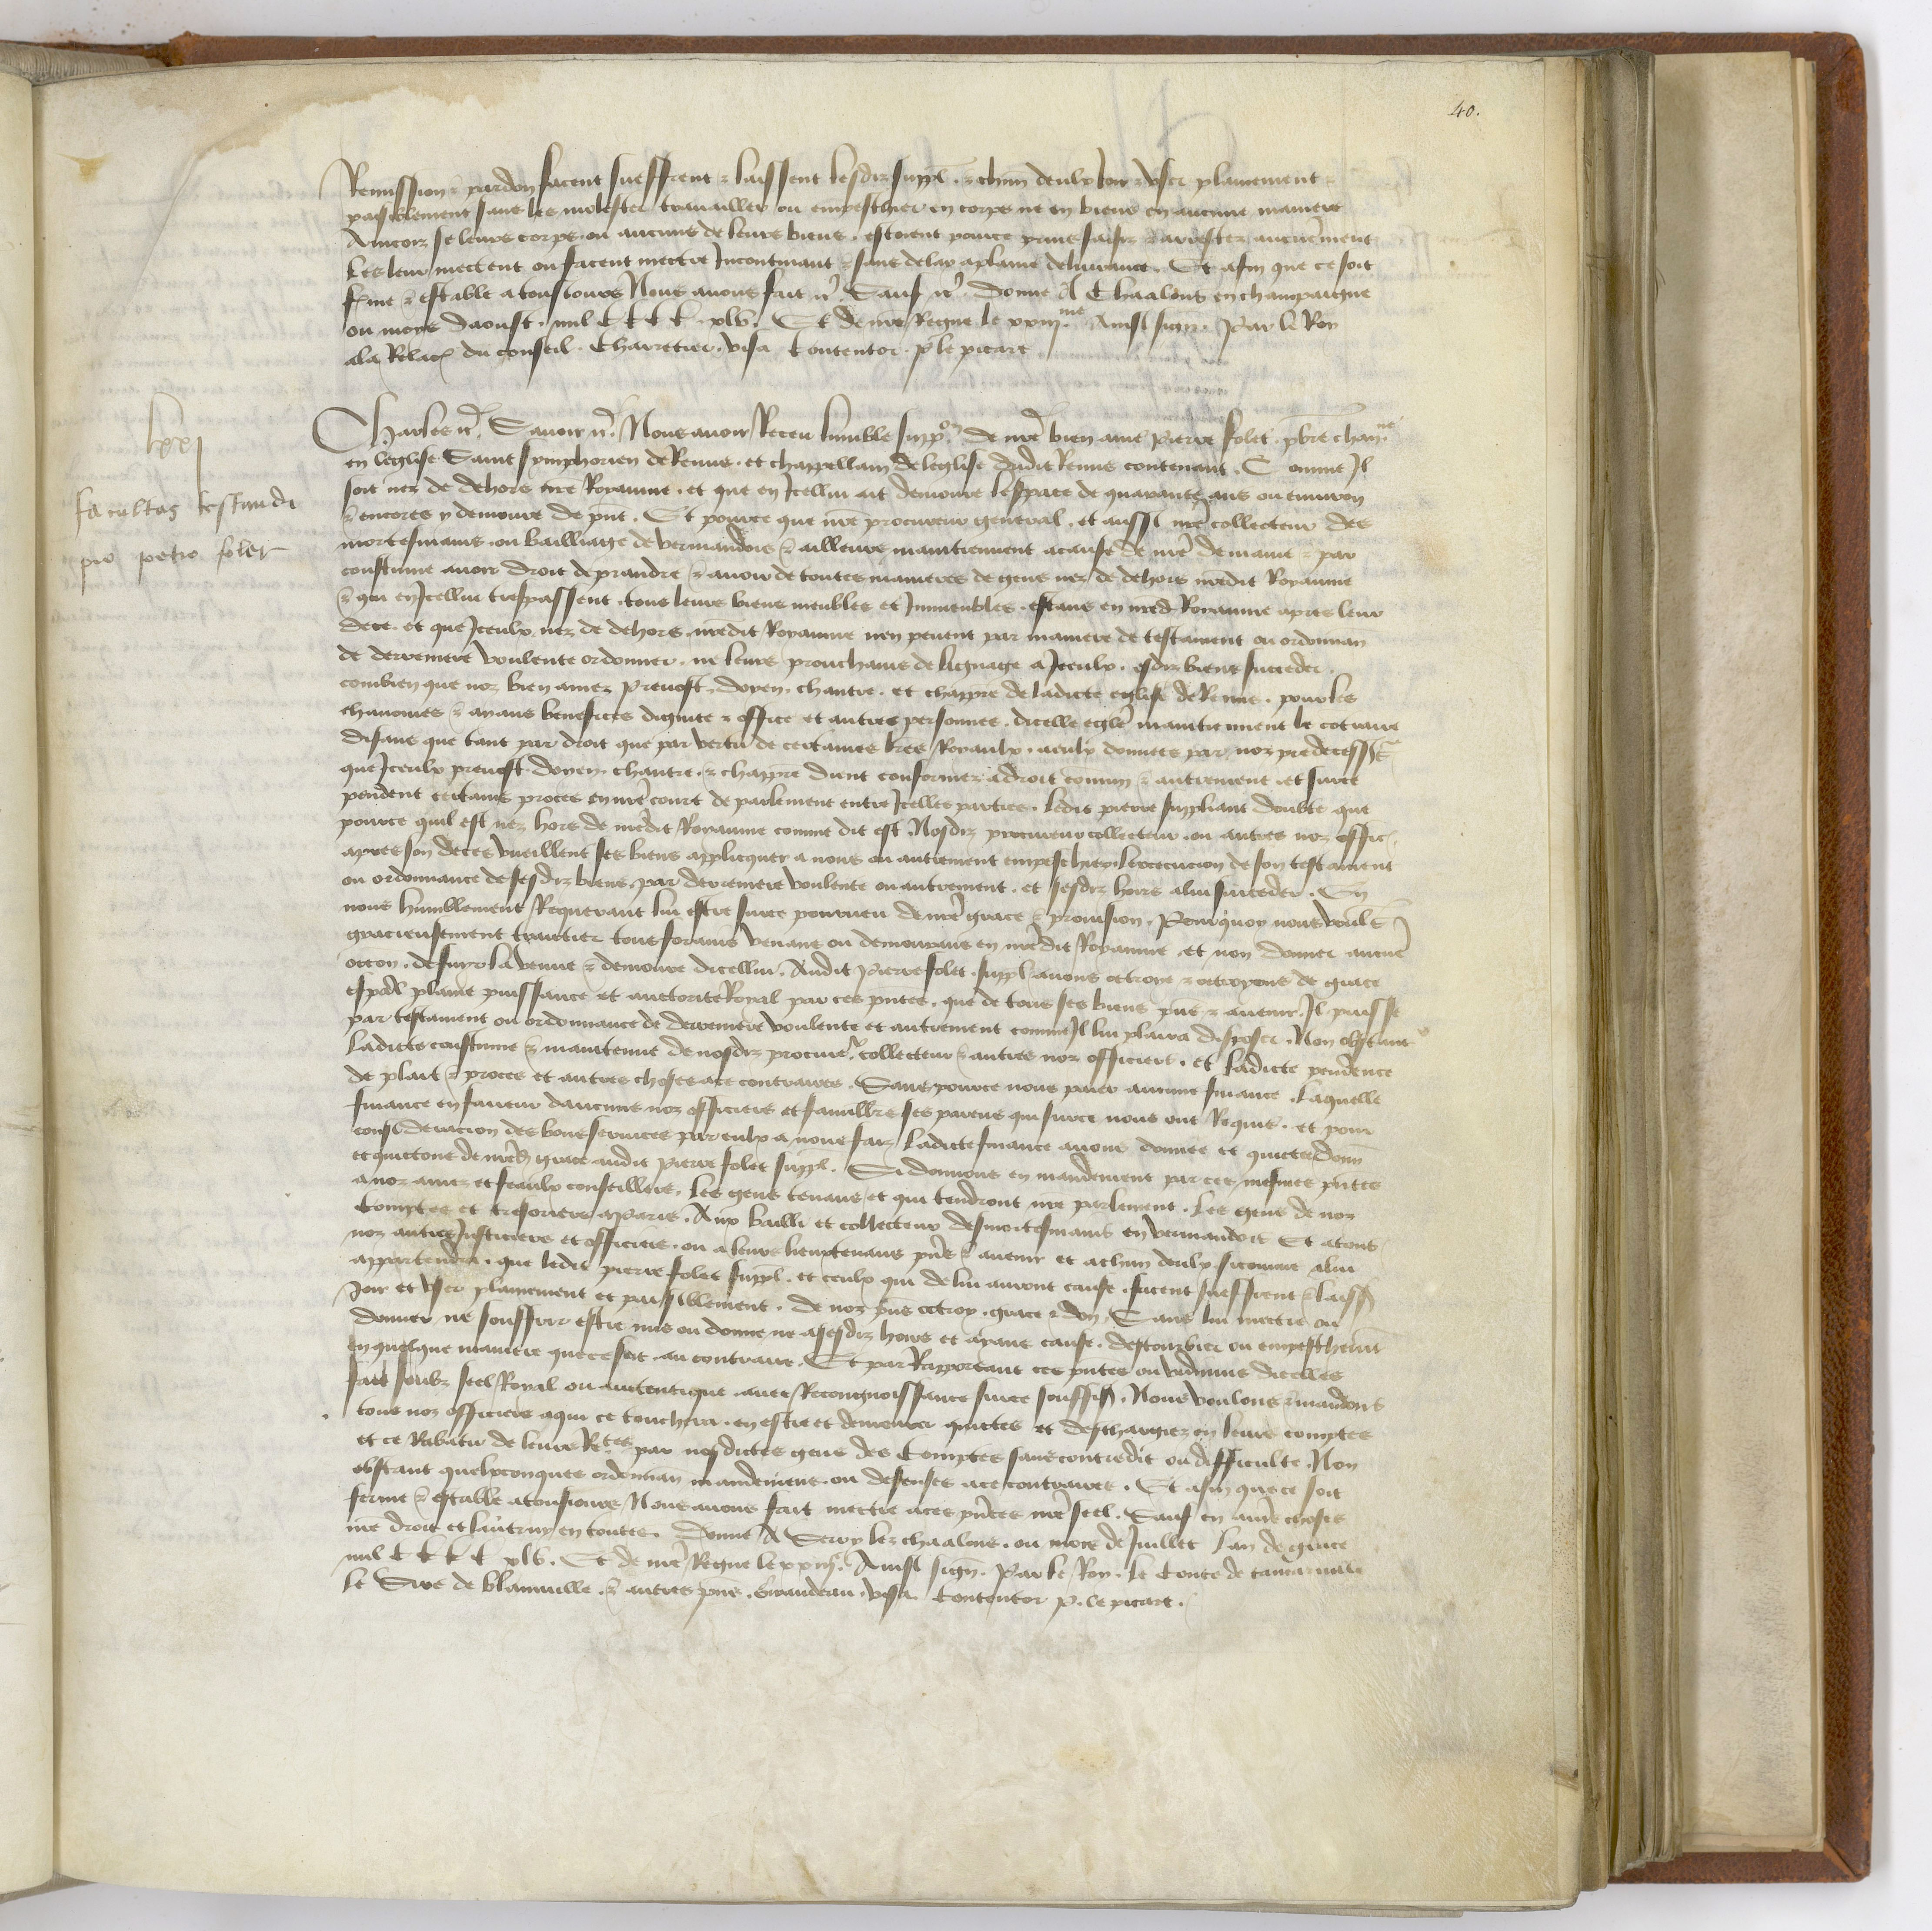 40.
Remission & pardon facent sueffrent & laissent lesdiz suppl. & chun deulx joir & user plainement &
paisiblement sans les molester travailler ou empescher en corps ne en biens en aucune maniere
Aincois se leurs corps ou aucuns de leurs biens estoient pource prins saisiz & arrestez aucunement
les leur mectent ou facent mectre Incontinant & sans delay a plaine delivrance. Et afin que ce soit
fme & estable a tousiours Nous avons fait &c. Sauf &c. Donne A Chaalons en champaigne
ou mois daoust. mil CCCC xlv. Et de nre Regne le xxiii.me Ainsi sign. Par le Roy
ala Relacion du conseil. Charretier. visa Contentor. p le picart
lxxi
facultas testandi
pro petro folet
Charles &c. Savoir &c. Nous avoir Receu humble supp.on de nre bien ame pierre folet. pbre chan.ne
en leglise Saint symphorien de Reims. et chappellain de leglise dudit Reims contenant. Comme Il
soit nez de dehors nre Royaume. et que en Icellui ait demoure lespace de quarante ans ou environ
& encores y demoure de pnt. Et pource que nre procureur general. et aussi nre collecteur des
mortesmains. ou bailliage de vermandois & ailleurs maintiennent acause de nre demaine & par
coustume avoir droit de prandre & avoir de toutes manieres de gens nez de dehors nredit Royaume
& qui en Icellui trespassent. tous leurs biens meubles et Immeubles. estans en nred. Royaume apres leur
deces. et que Iceulx nez de dehors nredit Royaume nen peuent par maniere de testament ou ordonnan
de derreniere voulente ordonner. ne leurs prouchains de lignage a Iceulx. esdiz biens succeder.
combien que noz bien amez Prevost. doyen. chantre. et chappre de ladicte eglise de Reims. pour les
chanoines & ayans benefices dignite & office et autres personnes. dicelle egle maintiennent le contraire
disans que tant par droit que par vertu de certaines lres Royaulx. aeulx donnees par noz predecess.
que Iceulx prevost. doyen. chantre. & chappre dient conformes a droit commun & autrement. et surce
pendent certains proces en nre court de parlement entre Icelles parties. ledit pierre suppliant doubte que
pource quil est nez hors de nredit Royaume comme dit est. Nosdiz procureur collecteur. ou autres noz offic.
apres son deces vueillent ses biens applicquer a nous ou autrement empeschier lexecucion de son testament
ou ordonnance de sesdiz biens. par derreniere voulente ou autrement. et sesdiz hoirs alui succeder. En
nous humblement Requerant lui estre surce pourveu de nre grace & provision. Pourquoy nous voul.
gracieusement traictier tous forains venans ou demourans en nredit Royaume. et non donner aucune
occon. de fuyr la venue & demoure dicellui. Audit Pierre folet. suppl avons octroye & octroyons de grace
espal plaine puissance et auctorite Royal par ces pntes. que de tous ses biens pns & avenir. Il puisse
par testament ou ordonnance de derreniere voulente et autrement comme Il lui plaira disposer. Non obstant
ladicte coustume & maintenue de nosdiz procure.r collecteur & autres noz officiers. et ladicte pendence
de plait & proces et autres choses ace contraires. Sans pource nous paier aucune finance. Laquelle
finance en faveur daucuns noz officiers et familliers ses parens qui surce nous ont Requis. et pour
consideracion des bons services par eulx a nous faiz ladicte finance avons donnee et quictee donn
et quictons de nred. grace audit Pierre folet suppl. Si donnons en mandement par ces mesmes pntes
a noz amez et feaulx conseillers. Les gens tenans et qui tendront nre parlement. Les gens de noz
Comptes et tresoriers aparis. Aux bailli et collecteur des mortesmains en vermandois Et atous
noz autres Justiciers et officiers. ou a leurs lieuxtenans pns & avenir et achun deulx sicomme alui
appartendra. que ledit pierre folet suppl. et ceulx qui de lui auront cause. facent sueffrent & laiss
Joir et user plainement et paisiblement. de noz pns octroy. grace & don. Sans lui mectre ou
donner ne souffrir estre mis ou donne ne asesdiz hoirs et ayans cause. destourbier ou empeschemt
en quelque maniere que ce soit au contraire. Et par Rapportant ces pntes ou vidimus dicelles
fait soubz seel Royal ou autentique avec Recongnoissance surce souffis. Nous voulons & mandons
tous noz officiers aqui ce touchera. en estre et demourer quictes et deschargiez en leurs comptes
et ce Rabatu de leurs Rctes par nosdictes gens des Comptes sans contredit ou difficulte. Non
obstant quelxconques ordonnan mandemens. ou defenses ace contraires. Et afin que ce soit
ferme & estable atousiours Nous avons fait mectre aces pntes nre seel. Sauf en autre choses
nre droit et lautruy en toutes. Donne A Sercy lez chaalons. ou mois de Juillet Lan de grace
mil CCCC xlv. Et de nre Regne le xxiii. Ainsi sign. Par le Roy. le Conte de tancarville
le Sire de blainville. & autres pns. Giraudeau. visa. Contentor P. le picart.